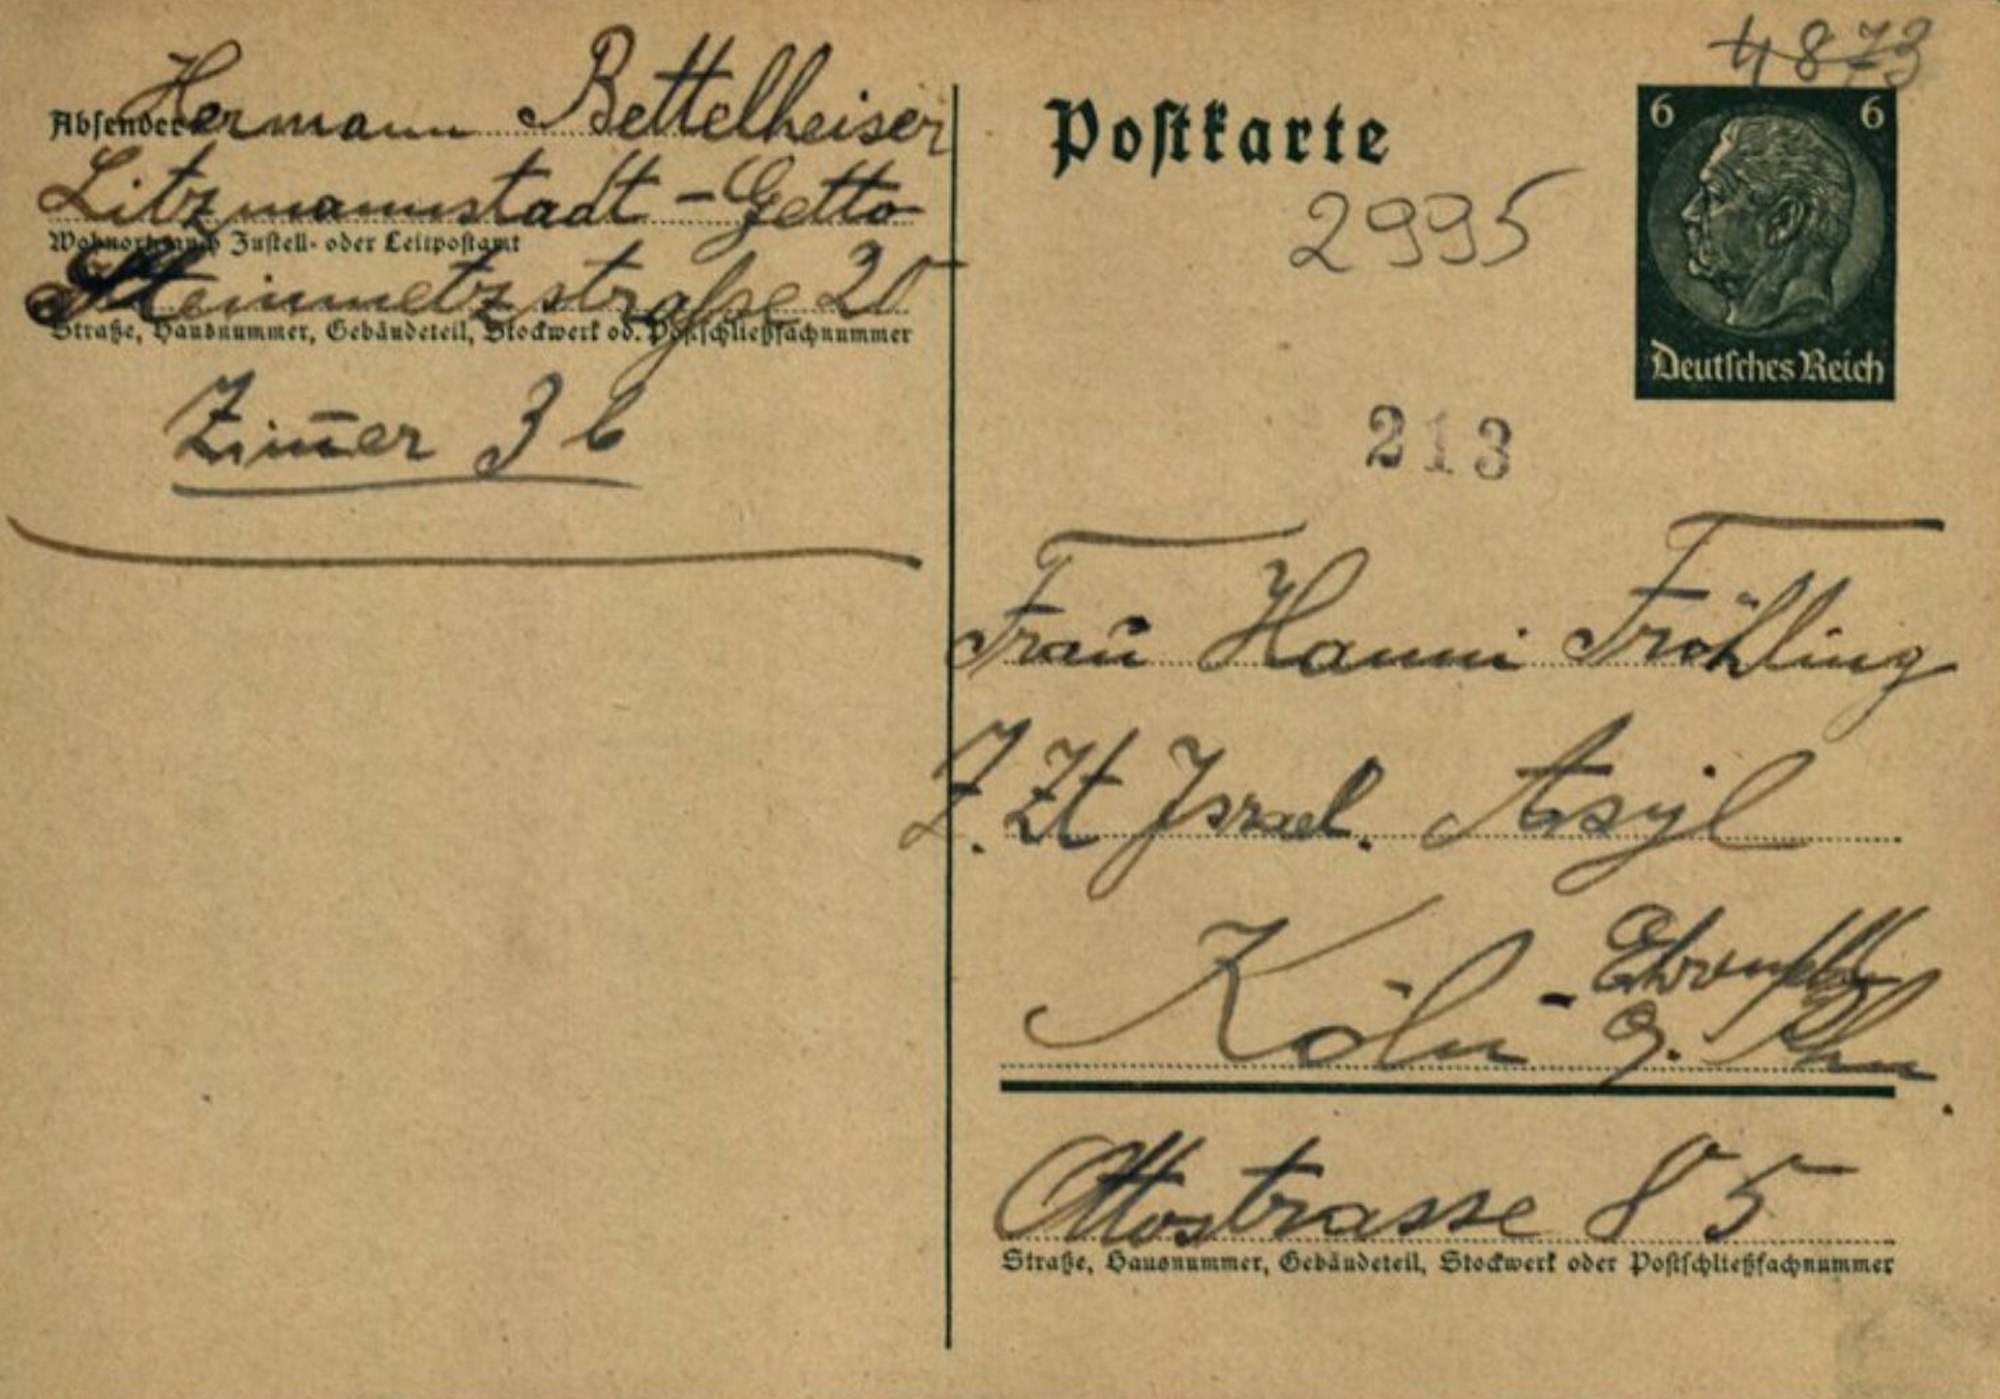 Absender
Hermann Bettelheiser
Litzmannstadt - Getto
Wohnort, auch Zustell- oder Leitpostamt
Steinmetzstraße 20
Straße, Hausnummer, Gebäudeteil, Stockwerk od. Postschließfachnummer
Zim̄er 3 b
4873
Postkarte
6 6
Deutsches Reich
2995
213
Frau Hanni Fröhling
Z. Zt Israel. Asyl
Köln - Ehrenfeld
Ottostrasse 85
Straße, Hausnummer, Gebäudeteil, Stockwerk oder Postschließfachnummer